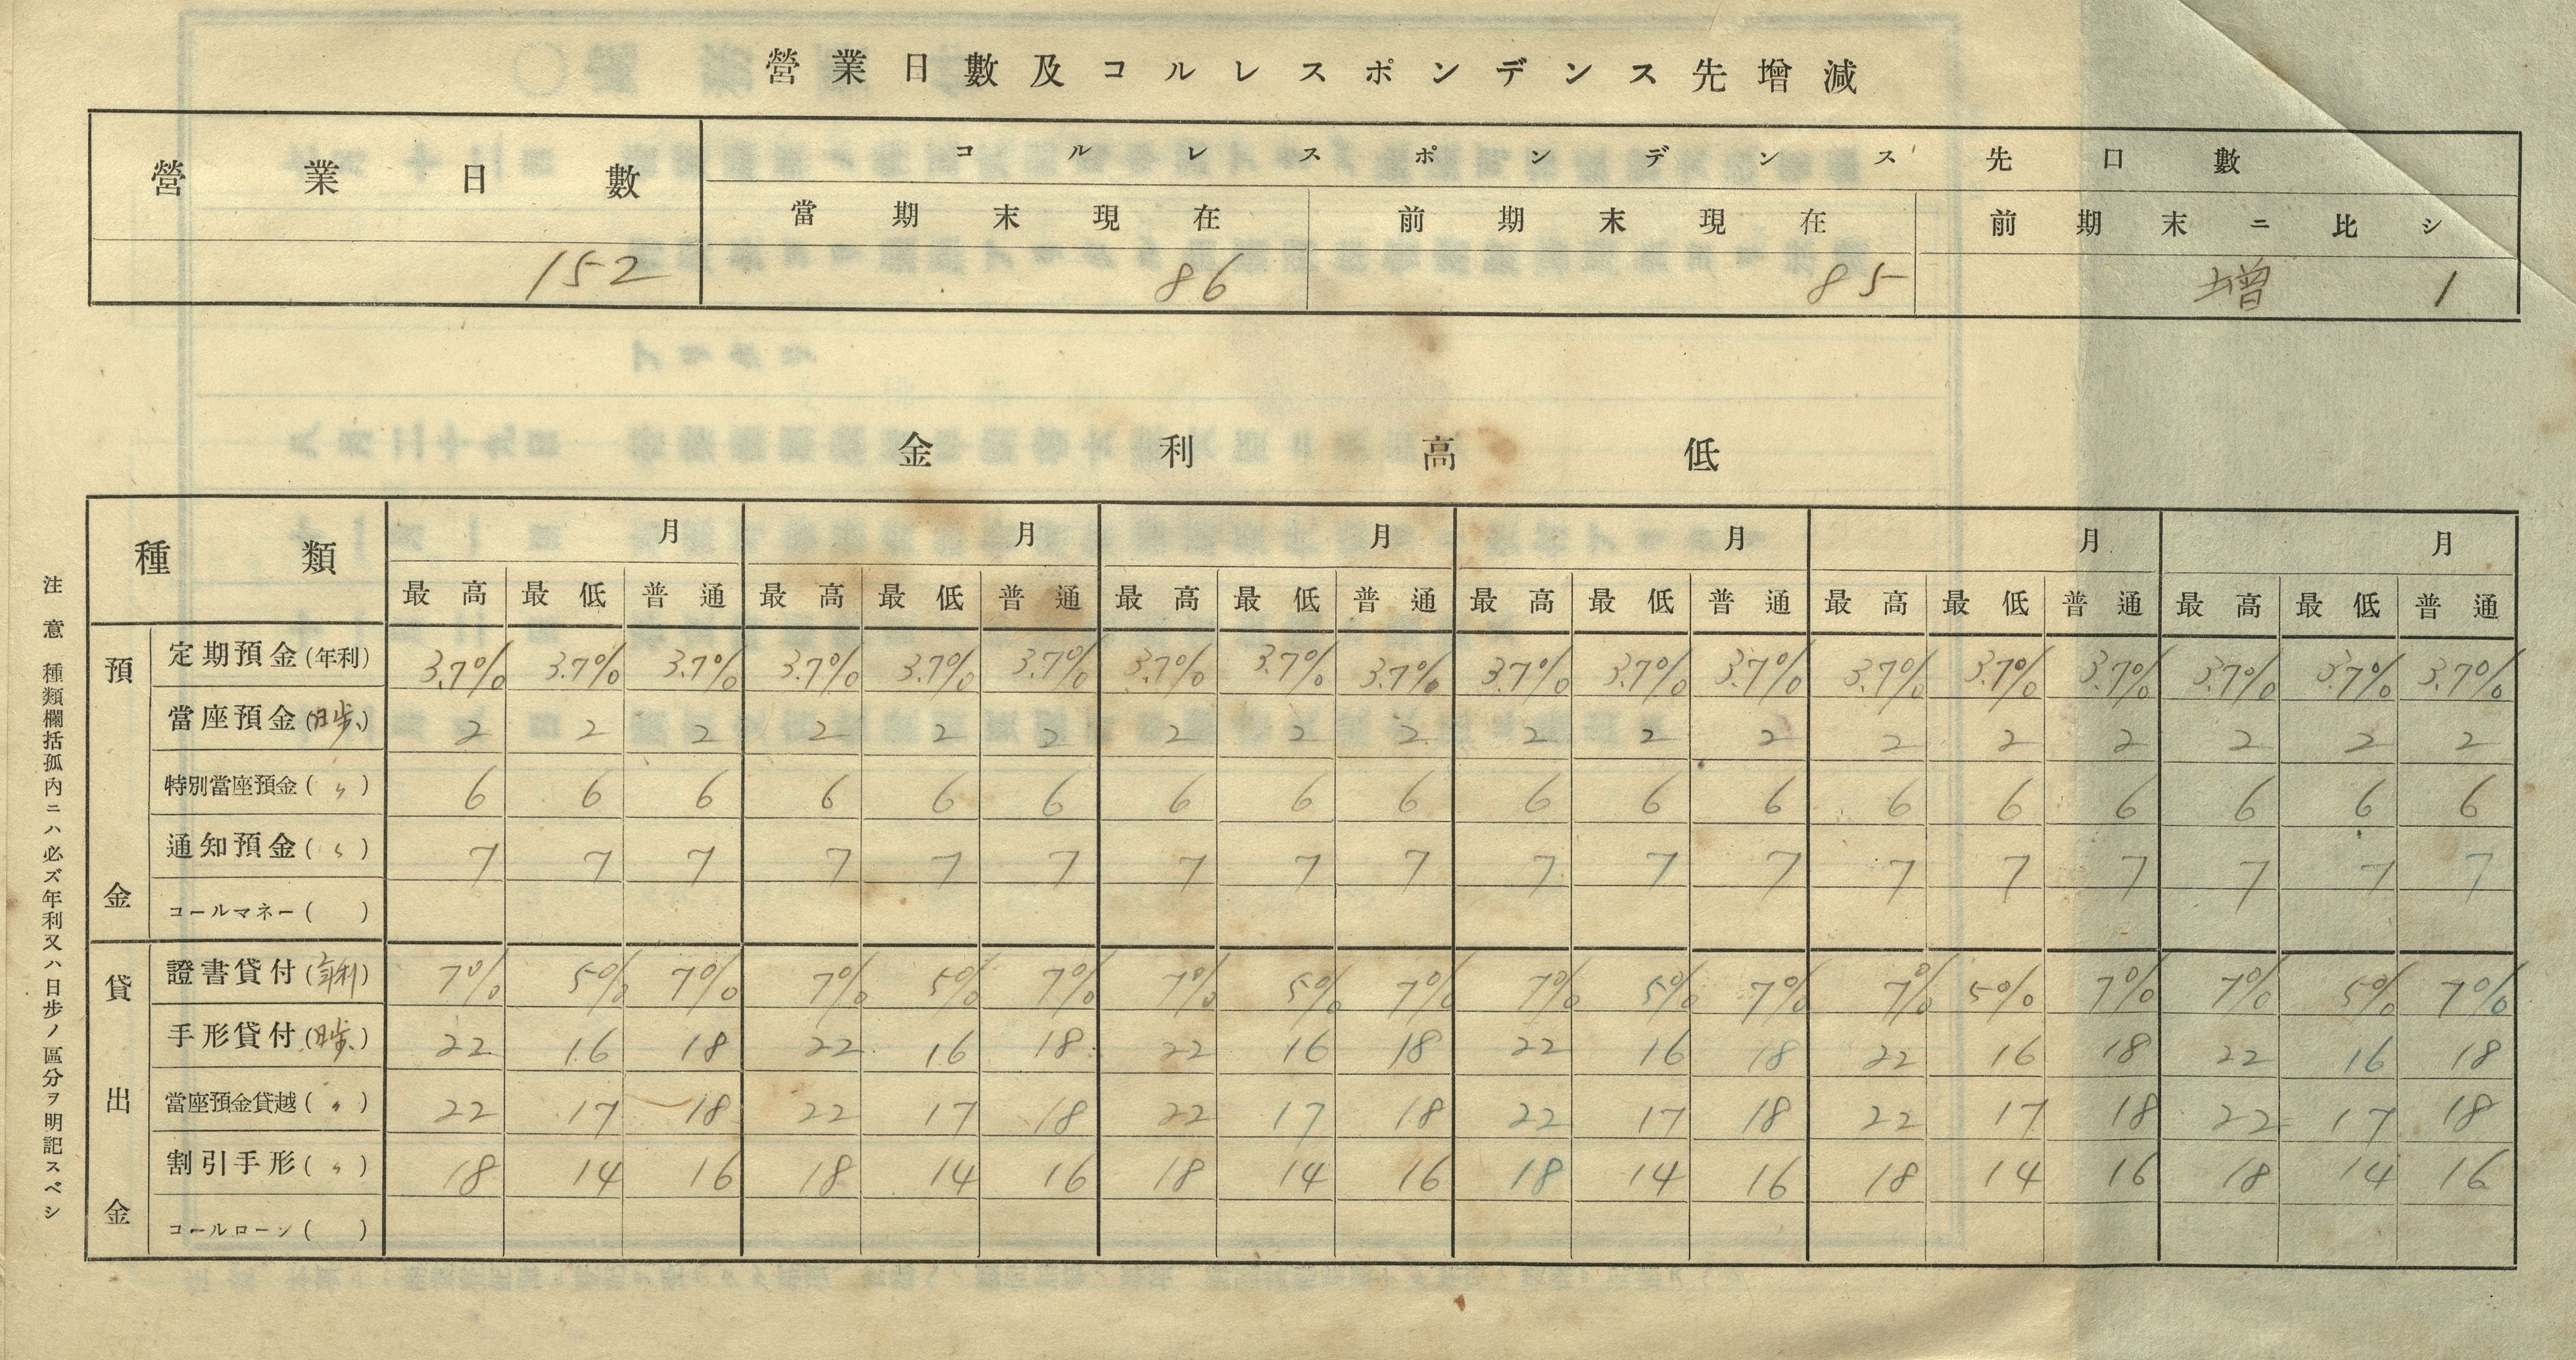 營業日數及コルレスポンデンス先增減
營業日數 コルレスポンデンス先口數
當期末現在 前期末現在 前期末ニ比シ
152 86 85 増 1
金利高低
種類 月 月 月 月 月 月
最高 最低 普通 最高 最低 普通 最高 最低 普通 最高 最低 普通 最高 最低 普通 最高 最低 普通
預金
定期預金(年利) 3.7% 3.7% 3.7% 3.7% 3.7% 3.7% 3.7% 3.7% 3.7% 3.7% 3.7% 3.7% 3.7% 3.7% 3.7% 3.7% 3.7% 3.7%
當座預金(日歩) 2 2 2 2 2 2 2 2 2 2 2 2 2 2 2 2 2 2
特別當座預金(〃) 6 6 6 6 6 6 6 6 6 6 6 6 6 6 6 6 6 6
通知預金(〃) 7 7 7 7 7 7 7 7 7 7 7 7 7 7 7 7 7 7
コールマネー( )
貸出金
證書貸付(年利) 7% 5% 7% 7% 5% 7% 7% 5% 7% 7% 5% 7% 7% 5% 7% 7% 5% 7%
手形貸付(日歩) 22 16 18 22 16 18 22 16 18 22 16 18 22 16 18 22 16 18
當座預金貸越(〃) 22 17 18 22 17 18 22 17 18 22 17 18 22 17 18 22 17 18
割引手形(〃) 18 14 16 18 14 16 18 14 16 18 14 16 18 14 16 18 14 16
コールローン( )
注意 種類欄括孤內ニハ必ズ年利又ハ日步ノ區分ヲ明記スベシ